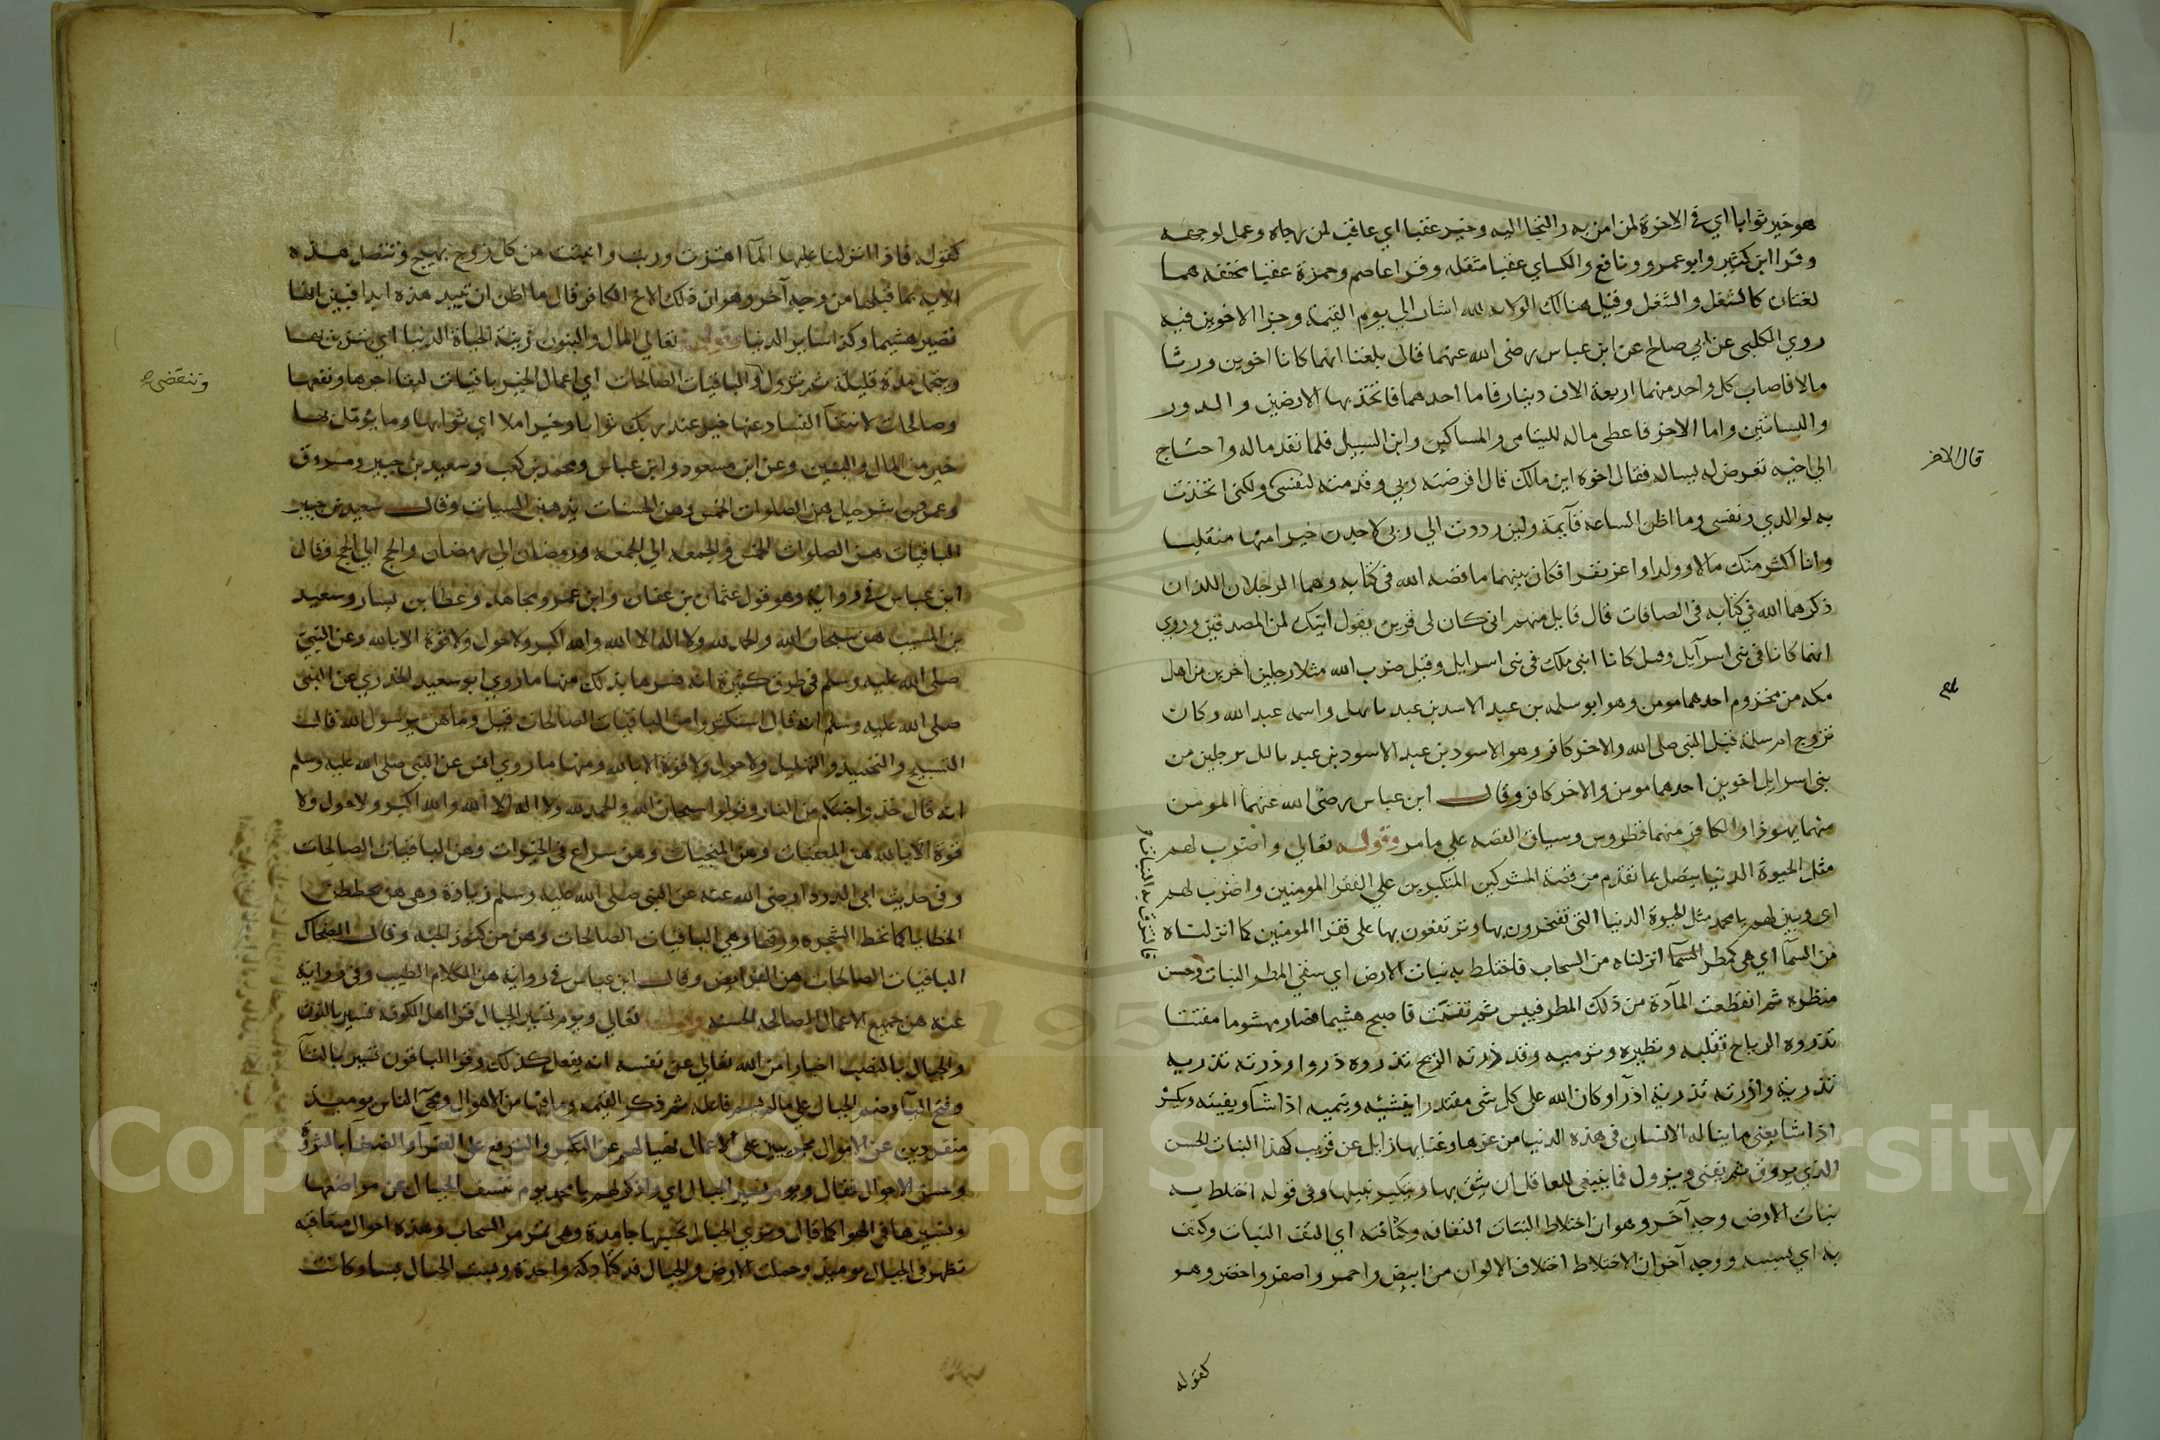 هو خير ثوابا اي في الاخرة لمن امن به والتجا اليه وخير عقبا اي عاقبة لمن رجاه وعمل لوجهه
وقرا ابن كثير وابو عمرو ونافع والكساي عقبا مثقله وقرا عاصم وحمزة عقبا مخففه هما
لغتان كالشغل والشغل وقيل هنالك الولاية لله اشار الي يوم القيمة وجزا الاخوين فيه
روي الكلبي عن ابي صالح عن ابن عباس رضي الله عنهما قال بلغنا انهما كانا اخوين ورثا
مالا فاصاب كل واحد منهما اربعة الاف دينار فاما احدهما فاتخذ بها الارضين والدور
والبساتين واما الاخر فاعطي ماله لليتامي والمساكين وابن السبيل فلما نفد ماله واحتاج
الي اخيه تعرض له يساله فقال اخوه اين مالك قال اقرضته ربي وقدمته لنفسي ولكني اتخذت
قال الاخر
به لوالدي ونفسي وما اظن الساعة قآيمة ولين رددت الي ربي لاجدن خيرا منها منقلبا
وانا اكثر منك مالا وولدا واعز نفرا فكان بينهما ما قصه الله في كتابه وهما الرجلان اللذان
ذكرهما الله في كتابه في الصافات قال قايل منهم اني كان لي قرين يقول اينك لمن المصدقين وروي
انهما كانا في بني اسرآيل وقيل كانا ابني ملك في بني اسرايل وقيل ضرب الله مثلا رجلين اخرين من اهل
مكه من مخزوم احدهما مومن وهو ابو سلمه بن عبد الاسد بن عبد ياليل واسمه عبد الله وكان
تزوج ام سلمة قبل النبي صلي الله والاخر كافر وهو الاسود بن عبد الاسود بن عبد ياليل رجلين من
بني اسرايل اخوين احدهما مومن والاخر كافر وقال ابن عباس رضي الله عنهما المومن
منهما يهوذا والكافر منهما قطروس وسياق القصه علي ما مر وقوله تعالي واضرب لهم
مثل الحيوة الدنيا يتصل بما تقدم من قصة المشركين المتكبرين علي الفقرا المومنين واضرب لهم
اي وبين لهم يا محمد مثل الحيوة الدنيا التي تفتخرون بها وترتفعون بها على فقرا المومنين كما انزلناه
من السمآ اي هي كمطر السمآ انزلناه من السحاب فاختلط به نبات الارض اي سقي المطر النبات وحسن
منظره ثم انقطعت المآدة من ذلك المطر فيبس ثم تفتت فاصبح هشيما فصار مهشوما مفتتا
تذروه الرياح تقلبه وتطيره وترميه وقد ذرته الريح تذروه ذروا وذرته تذريه
تذرية واذرته تذرية اذرآ وكان الله على كل شي مقتدرا ينشيه وينميه اذا شآ ويفنيه ويكسر
اذا شا يعني ما يناله الانسان في هذه الدنيا من عزها وغناها زايل عن قريب كهذا النبات الحسن
الذي يروق ثم يفني ويزول فما ينبغي للعاقل ان يثق بها ويتكبر بنيلها وفي قوله اختلط به
نبات الارض وجه آخر وهو ان اختلاط النبات التفافه وكثافته اي التف النبات وكثف
به اي بسببه ووجه آخر ان الاختلاط اختلاف الالوان من ابيض واحمر واصفر واخضر وهو
كقوله
كقوله فاذا انزلنا عليها المآ اهتزت وربت وانبتت من كل زوج بهيج وتتصل هذه
الآيه بما قبلها من وجه آخر وهو ان ذلك الاخ الكافر قال ما اظن ان تبيد هذه ابدا فبين انها
تصير هشيما وكذا ساير الدنيا وقوله تعالي المال والبنون زينة الحياة الدنيا اي يتزين بهما
ويتجمل مدة قليلة ثم تزول والباقيات الصالحات اي اعمال الخير باقيات لبقا اجرها ونفعها
وتنقضي صح
وصالحات لانتفآ الفساد عنها خير عند ربك ثوابا وخير املا اي ثوابها وما يؤمل بها
خير من المال والبنين وعن ابن مسعود وابن عباس ومحمد بن كعب وسعيد بن جبير ومسروق
وعمرو بن شرحبيل هن الصلوات الخمس وهن الحسنات يذهبن السيات وقال سعيد بن جبير
الباقيات هن الصلوات الخمس والجمعه الي الجمعه ورمضان الي رمضان والحج الي الحج وقال
ابن عباس في رواية وهو قول عثمان بن عفان وابن عمر ومجاهد وعطا بن يسار وسعيد
بن المسيب هن سبحان الله والحمد لله ولا اله الا الله والله اكبر ولا حول ولا قوة الا بالله وعن النبي
صلي الله عليه وسلم في طرق كثيرة انه فسرها بذلك منها ما روي ابو سعيد الخدري عن النبي
صلي الله عليه وسلم انه قال استكثروا من الباقيات الصالحات قيل وما هن يرسول الله قال
التسبيح والتحميد والتهليل ولا حول ولا قوة الا بالله ومنها ما روي انس عن النبي صلي الله عليه وسلم
انه قال خذوا جنتكم من النار وقولوا سبحان الله والحمد لله ولا اله الا الله والله اكبر ولا حول ولا
قوة الا بالله هن المعقبات وهن المنجيات وهن سراع في الخيرات وهن الباقيات الصالحات
وفي حديث ابي الدردا رضي الله عنه عن النبي صلي الله عليه وسلم زيادة وهي هن يحططن
الخطايا كما تحط الشجره ورقها وهي الباقيات الصالحات وهن من كنوز الجنه وقال الضحاك
الباقيات الصالحات هن الفرايض وقال ابن عباس في رواية هن الكلام الطيب وفي رواية
عنه هن جميع الاعمال الصالحه الحسنه وقوله تعالي ويوم نسير الجبال قرا اهل الكوفه نسير بالنون
والجبال بالنصب اخبارا من الله تعالي عن نفسه انه يفعل كذلك وقرا الباقون تسير بالتآ
وفتح اليآ وضم الجبال علي ما لم يسم فاعله ثم ذكر القيمه وما فيها من الاهوال ومجي الناس يوميذ
منفردين عن الاموال مجزيين علي الاعمال نهيا لهم عن التكبر والترفع علي الفقرآ والضعفآ بالثروة
وحسن الاحوال فقال ويوم نسير الجبال اي واذكر لهم يا محمد يوم ننسف الجبال عن مواضعها
ونسيرها في الهوا كما قال وتري الجبال تحسبها جامدة وهي تمر مر السحاب وهذه احوال متعاقبه
تظهر في الجبال يوميذ وحملت الارض والجبال فدكتا دكة واحدة وبست الجبال بسا وكانت